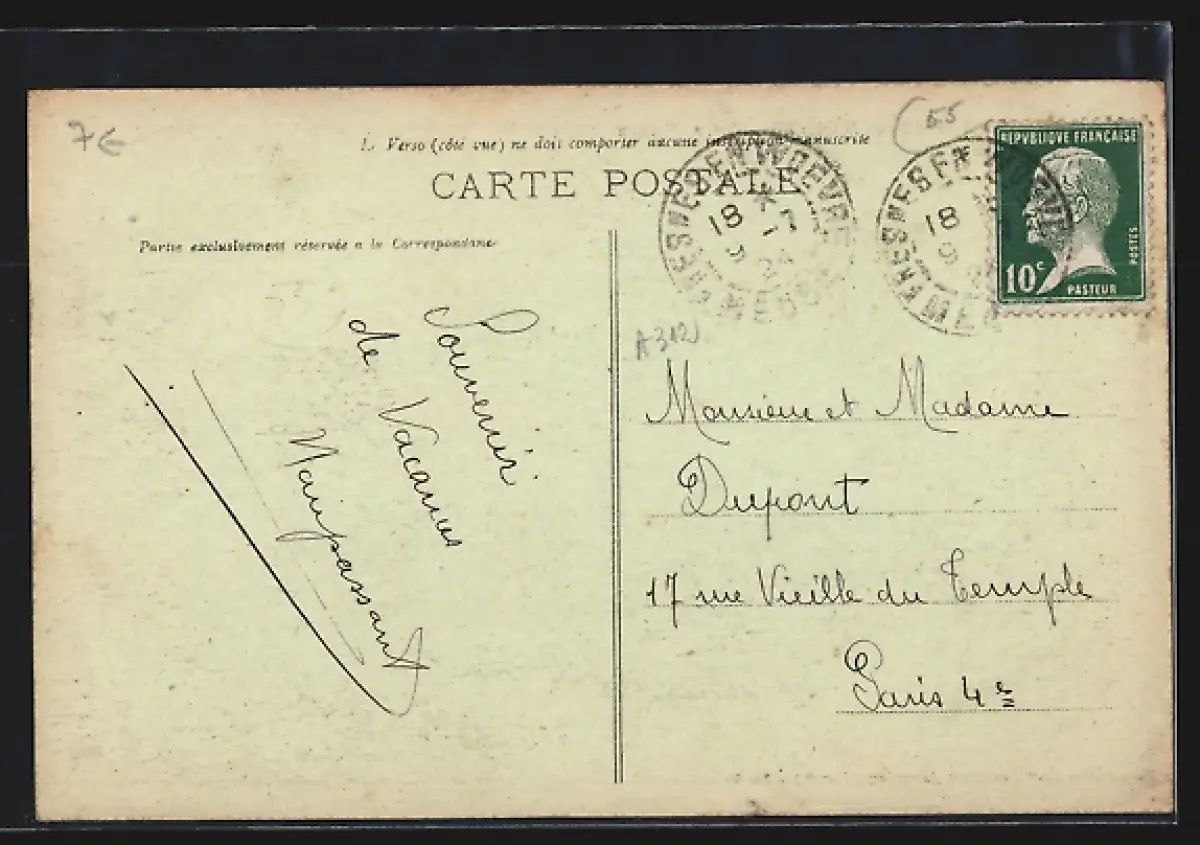 7€
55
Le Verso (côté vue) ne doit comporter aucune inscription manuscrite
CARTE POSTALE
Partie exclusivement réservée a la Correspondance
FRESNES EN WOEVRE
18 *
-7
9 24
MEUSE
FRESNES EN WOEVRE
18
9
REPVBLIQVE FRANÇAISE
POSTES
10c
PASTEUR
A312
Souvenir
de Vacances
Maupassant
Monsieur et Madame
Dupont
17 rue Vieille du Temple
Paris 4e